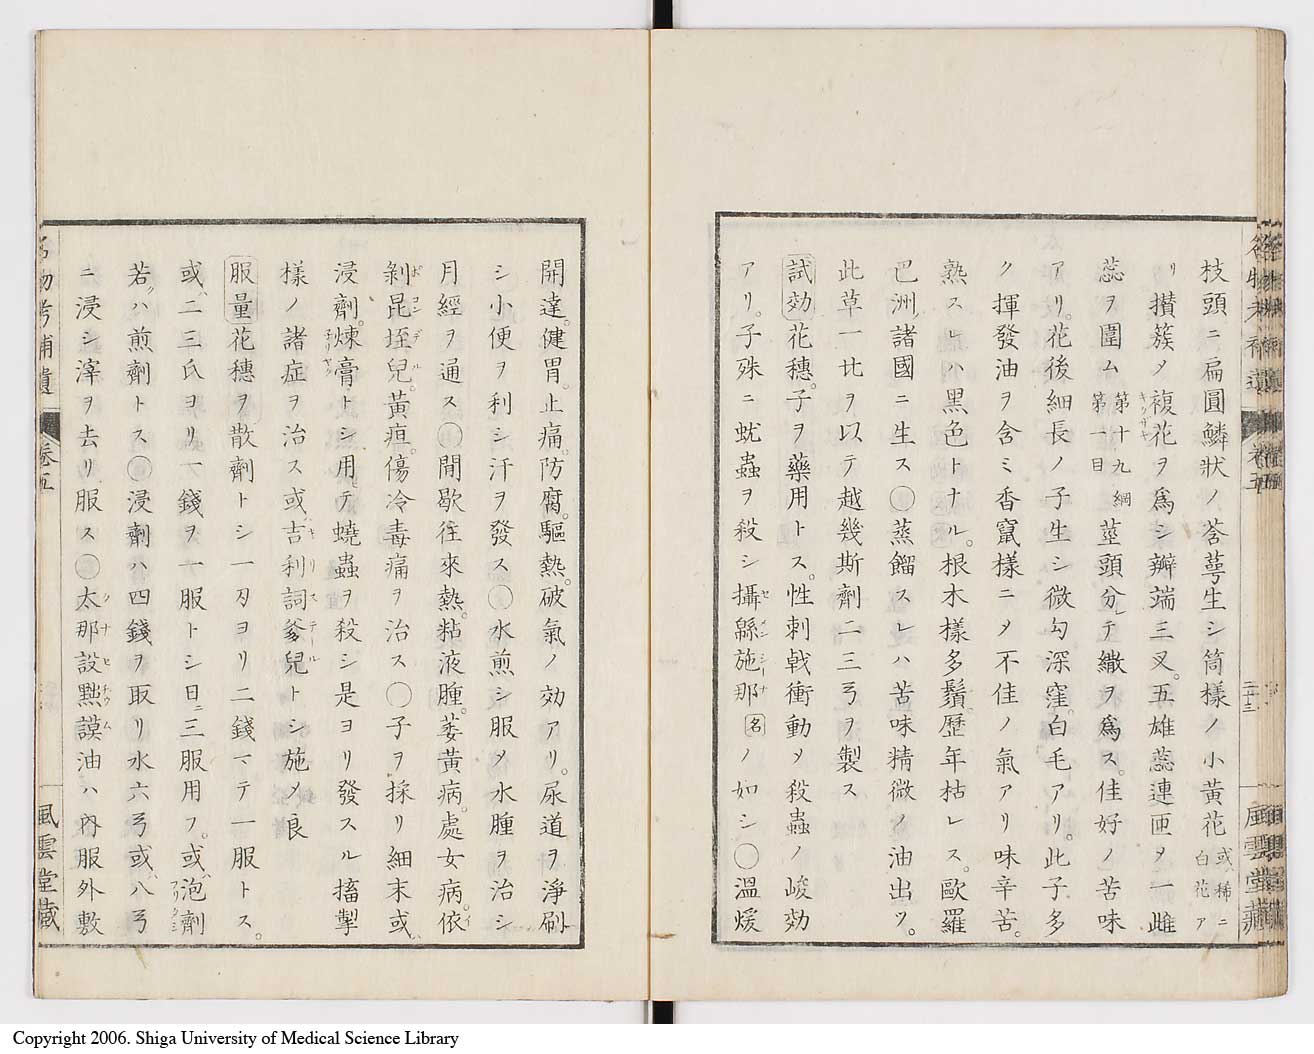 枝頭ニ扁圓鱗状ノ荅蕚生シ筒樣ノ小黄花或ハ稀ニ白花ア
リ攅簇メ複花ヲ爲シ瓣端三叉。五雄蕊連匝メ一雌
蕊ヲ圍ム第十九綱第一目莖頭分レテ繖ヲ爲ス。佳好ノ苦味
アリ。花後細長ノ子生シ微勾深窪。白毛アリ。此子多
ク揮發油ヲ含ミ香竄樣ニメ不佳ノ氣アリ味辛苦。
熟スレハ黒色トナル。根木樣多鬚。歷年枯レス。歐羅
巴洲諸國ニ生ス〇蒸餾スレハ苦味精微ノ油出ツ。
此草一比ヲ以テ越幾斯劑二三弓ヲ製ス
試効花穗。子ヲ藥用トス。性刺戟衝動メ殺蟲ノ峻効
アリ。子殊ニ蚘蟲ヲ殺シ攝緜施那セインシーナ名ノ如シ〇溫煖
開達。健胃。止痛。防腐。驅熱。破氣ノ効アリ。尿道ヲ淨刷
シ小便ヲ利シ汗ヲ發ス〇水煎シ服メ水腫ヲ治シ
月經ヲ通ス〇開歇往來熱。粘液腫。萎黄病。處女病。依イ
剝ポ昆コン埊デ兒ル。黄疸。傷冷毒痛ヲ治ス〇子ヲ採リ細末或ハ
浸劑。煉膏トシ用ヒテ蟯蟲ヲ殺シ是ヨリ發スル搐掣
樣ノ諸症ヲ治ス或ハ吉キ利リ詞ス爹テー兒ルトシ施メ良
服量花穗ヲ散劑トシ一刄ヨリ二錢マテ一服トス。
或ハ二三氏ヨリ一錢ヲ一服トシ日ニ三服用フ。或ハ泡劑
若クハ煎劑トス〇浸劑ハ四錢ヲ取リ水六弓或ハ八弓
ニ浸シ滓ヲ去リ服ス〇太那設㸃謨油ハ內服外敷
名物考補遺 卷五 二十三 風雲堂藏
Copyright 2006. Shiga University of Medical Science Library